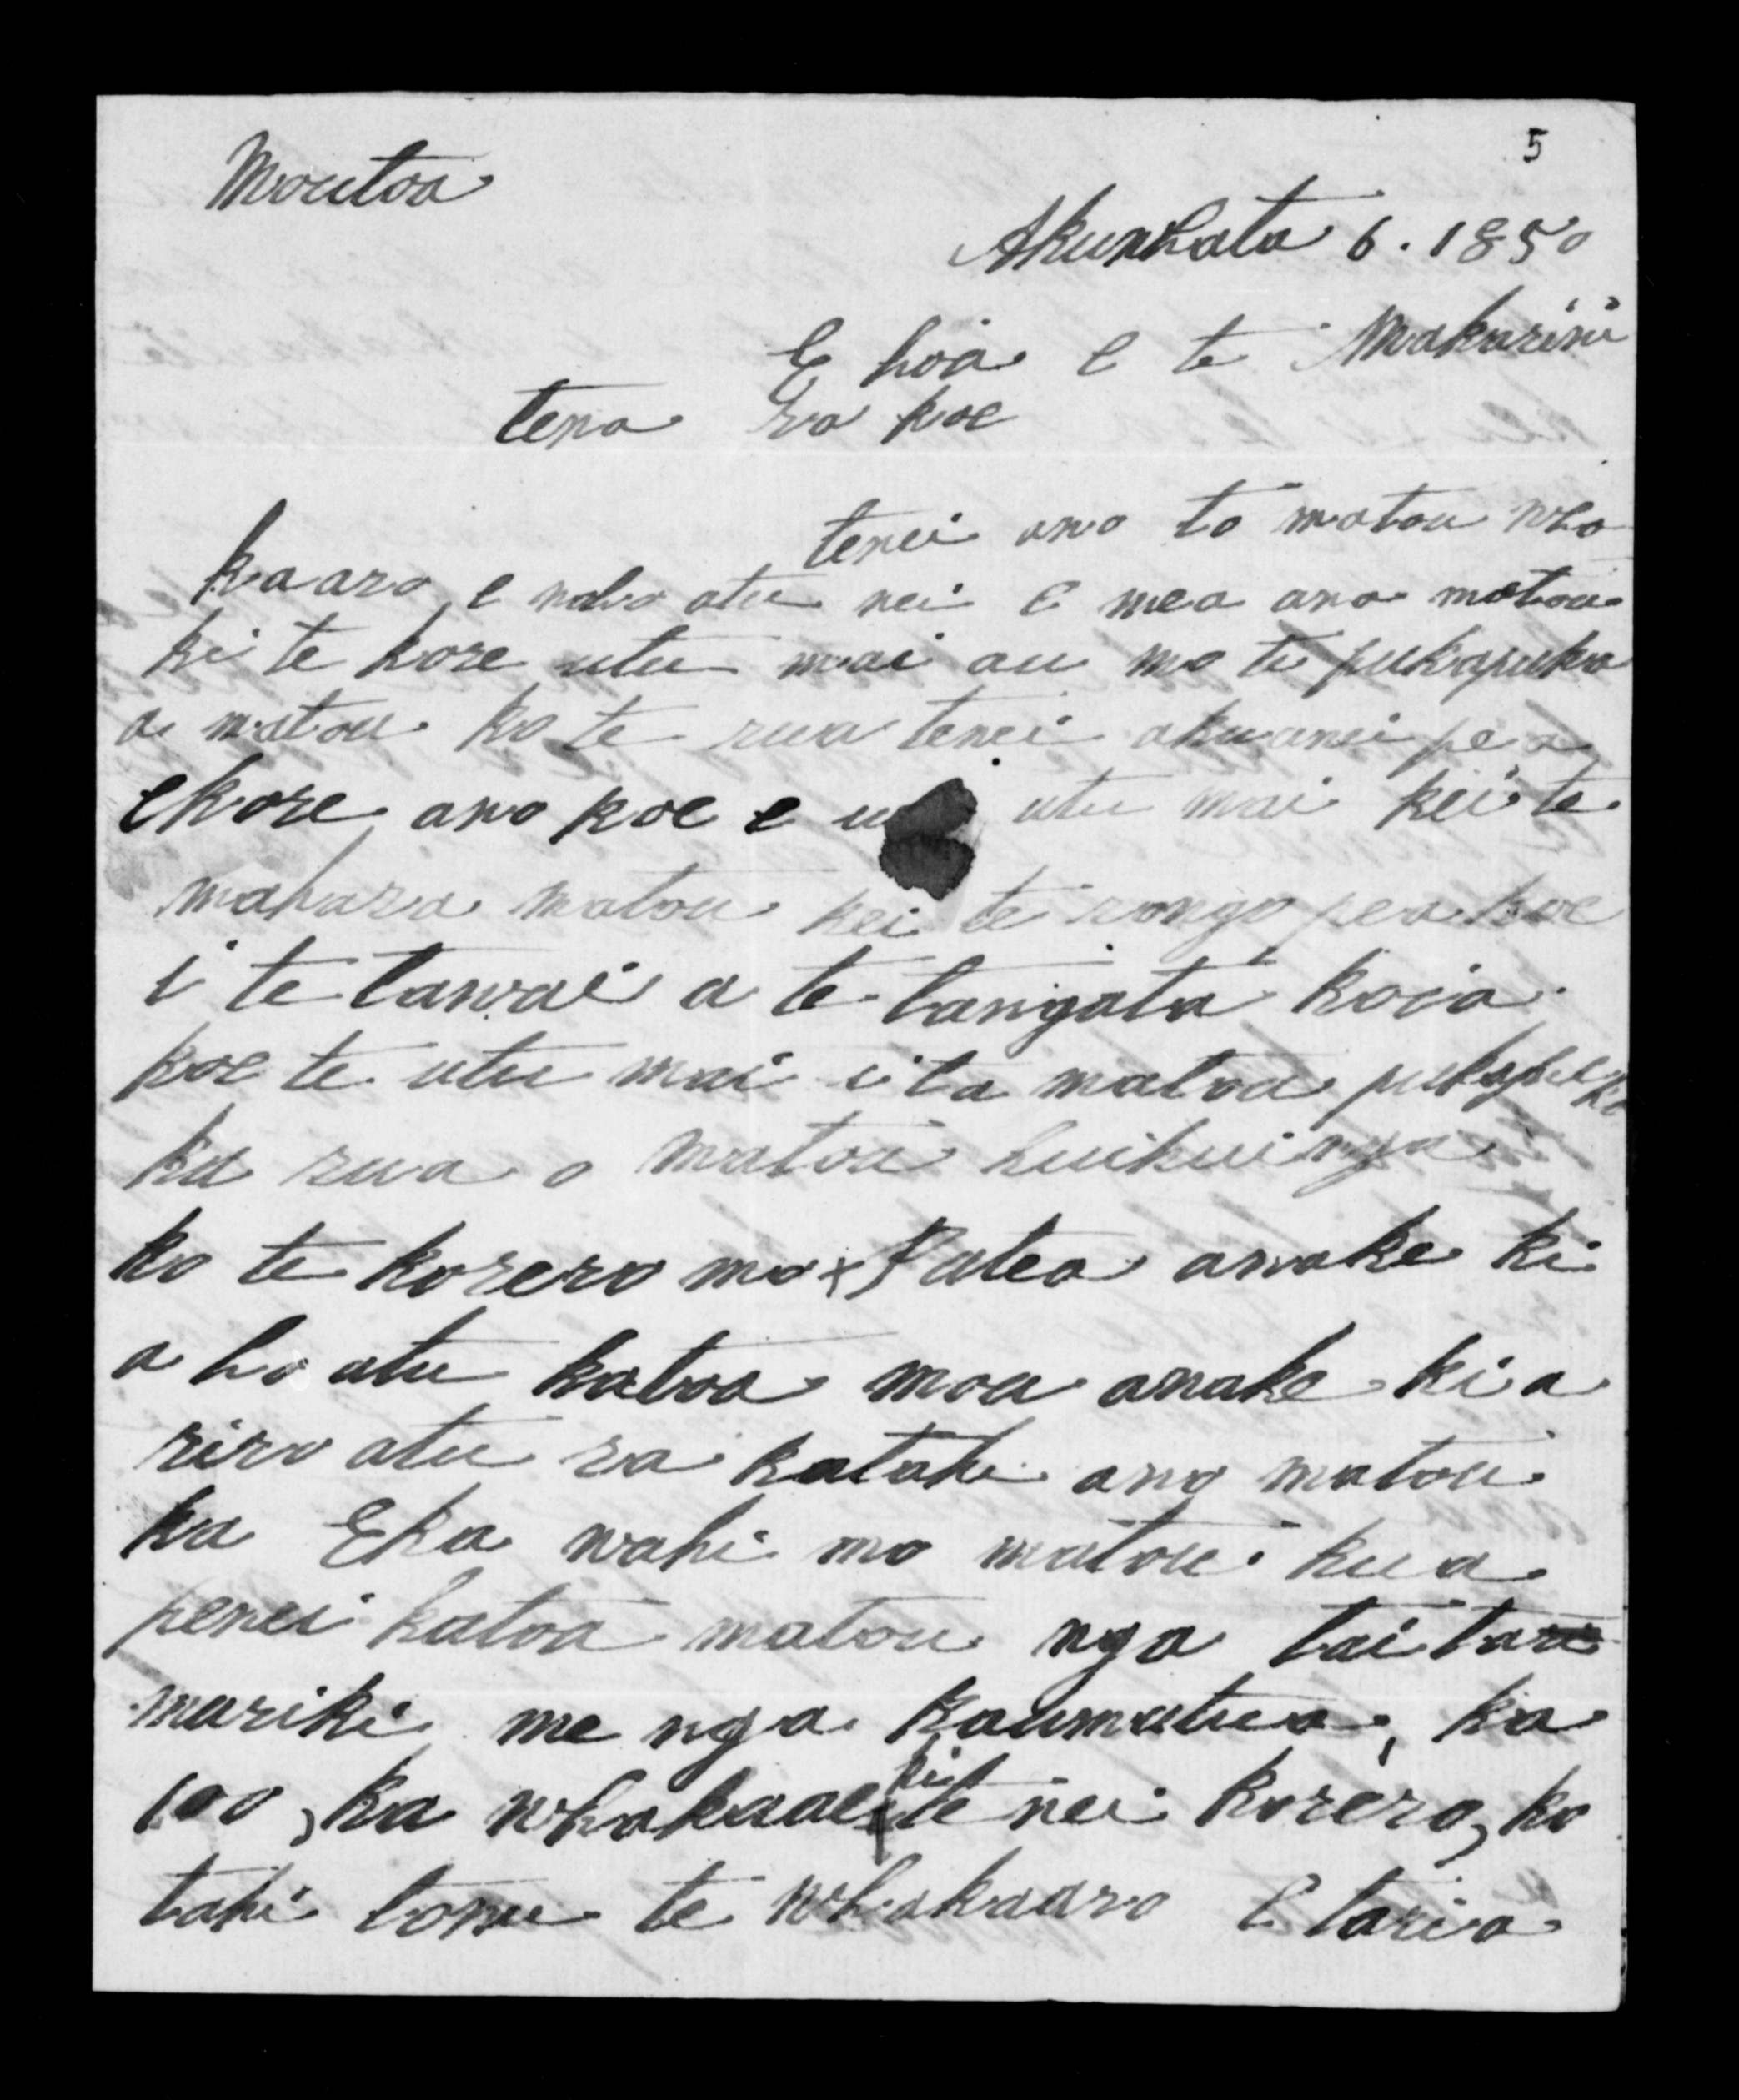 5
Moutoa
Akuhata 6. 1850
E hoa e te Makarini
tena ra koe
tenei ano ta matou wha
kaaro e hoatu nei e mea ana matou
ki te kore utu mai au mo te pukapuka
a matou ko te rua tenei akuanei pea
ekore ano koe e utu mai kei te
mahara matou kei te rongo pea koe
i te tawai a te tangata koia
koe te utu mai i ta matou pukapuka
ka rua o matou huihuinga
ko te korero mo Patea anake ki
a hoatu katoa mou anake kia
riro atu ra katahi ano matou
ka Eka wahi mo matou kua
penei katoa matou nga taita
mariki me nga kaumatua, ka
100, ka whakaae ki te nei korero, ko
tahi tonu te whakaaro E taria